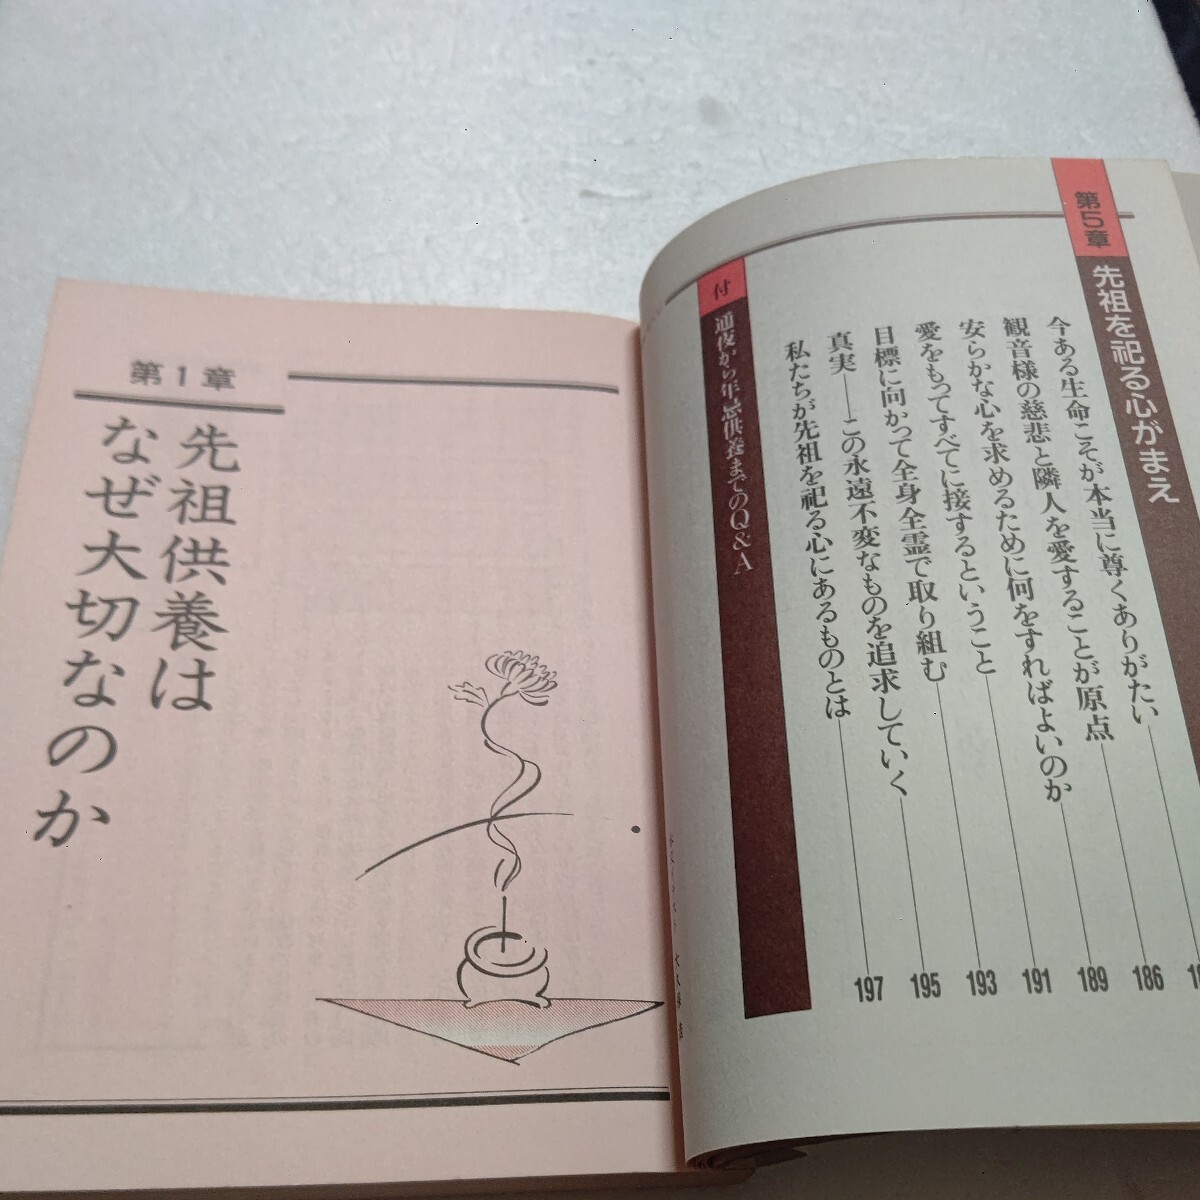 第5章
先祖を祀る心がまえ
今ある生命こそが本当に尊くありがたい
観音様の慈悲と隣人を愛することが原点 186
安らかな心を求めるために何をすればよいのか 189
愛をもってすべてに接するということ 191
目標に向かって全身全霊で取り組む 193
真実――この永遠不変なものを追求していく 195
私たちが先祖を祀る心にあるものとは 197
付
通夜から年忌供養までのQ&A
第1章
先祖供養は
なぜ大切なのか